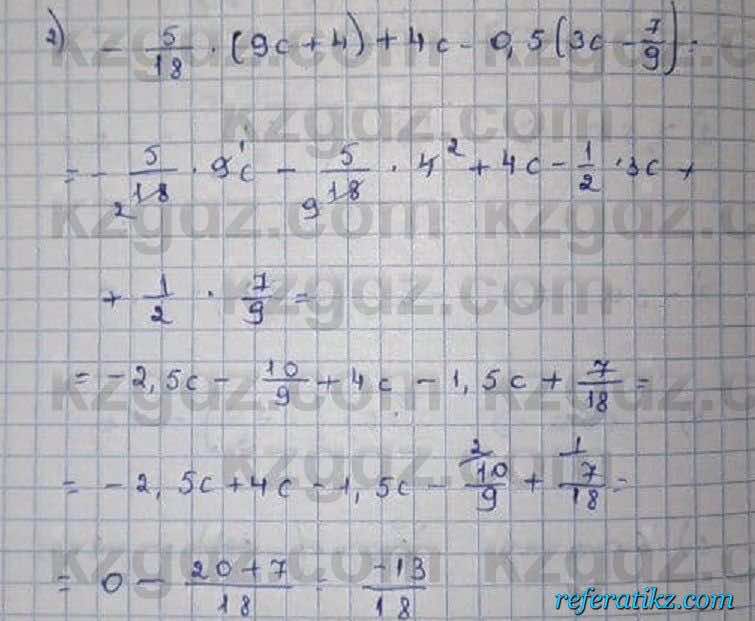 2) - 5/18 · (9c + 4) + 4c - 0,5 (3c - 7/9) =
= - 5/18 2 · 9 1 c - 5/18 9 · 4 2 + 4c - 1/2 · 3c +
+ 1/2 · 7/9 =
= -2,5c - 10/9 + 4c - 1,5c + 7/18 =
= -2,5c + 4c - 1,5c - 2 10/9 + 1 7/18 =
= 0 - 20+7/18 = -13/18
kzgdz.com
referatikz.com